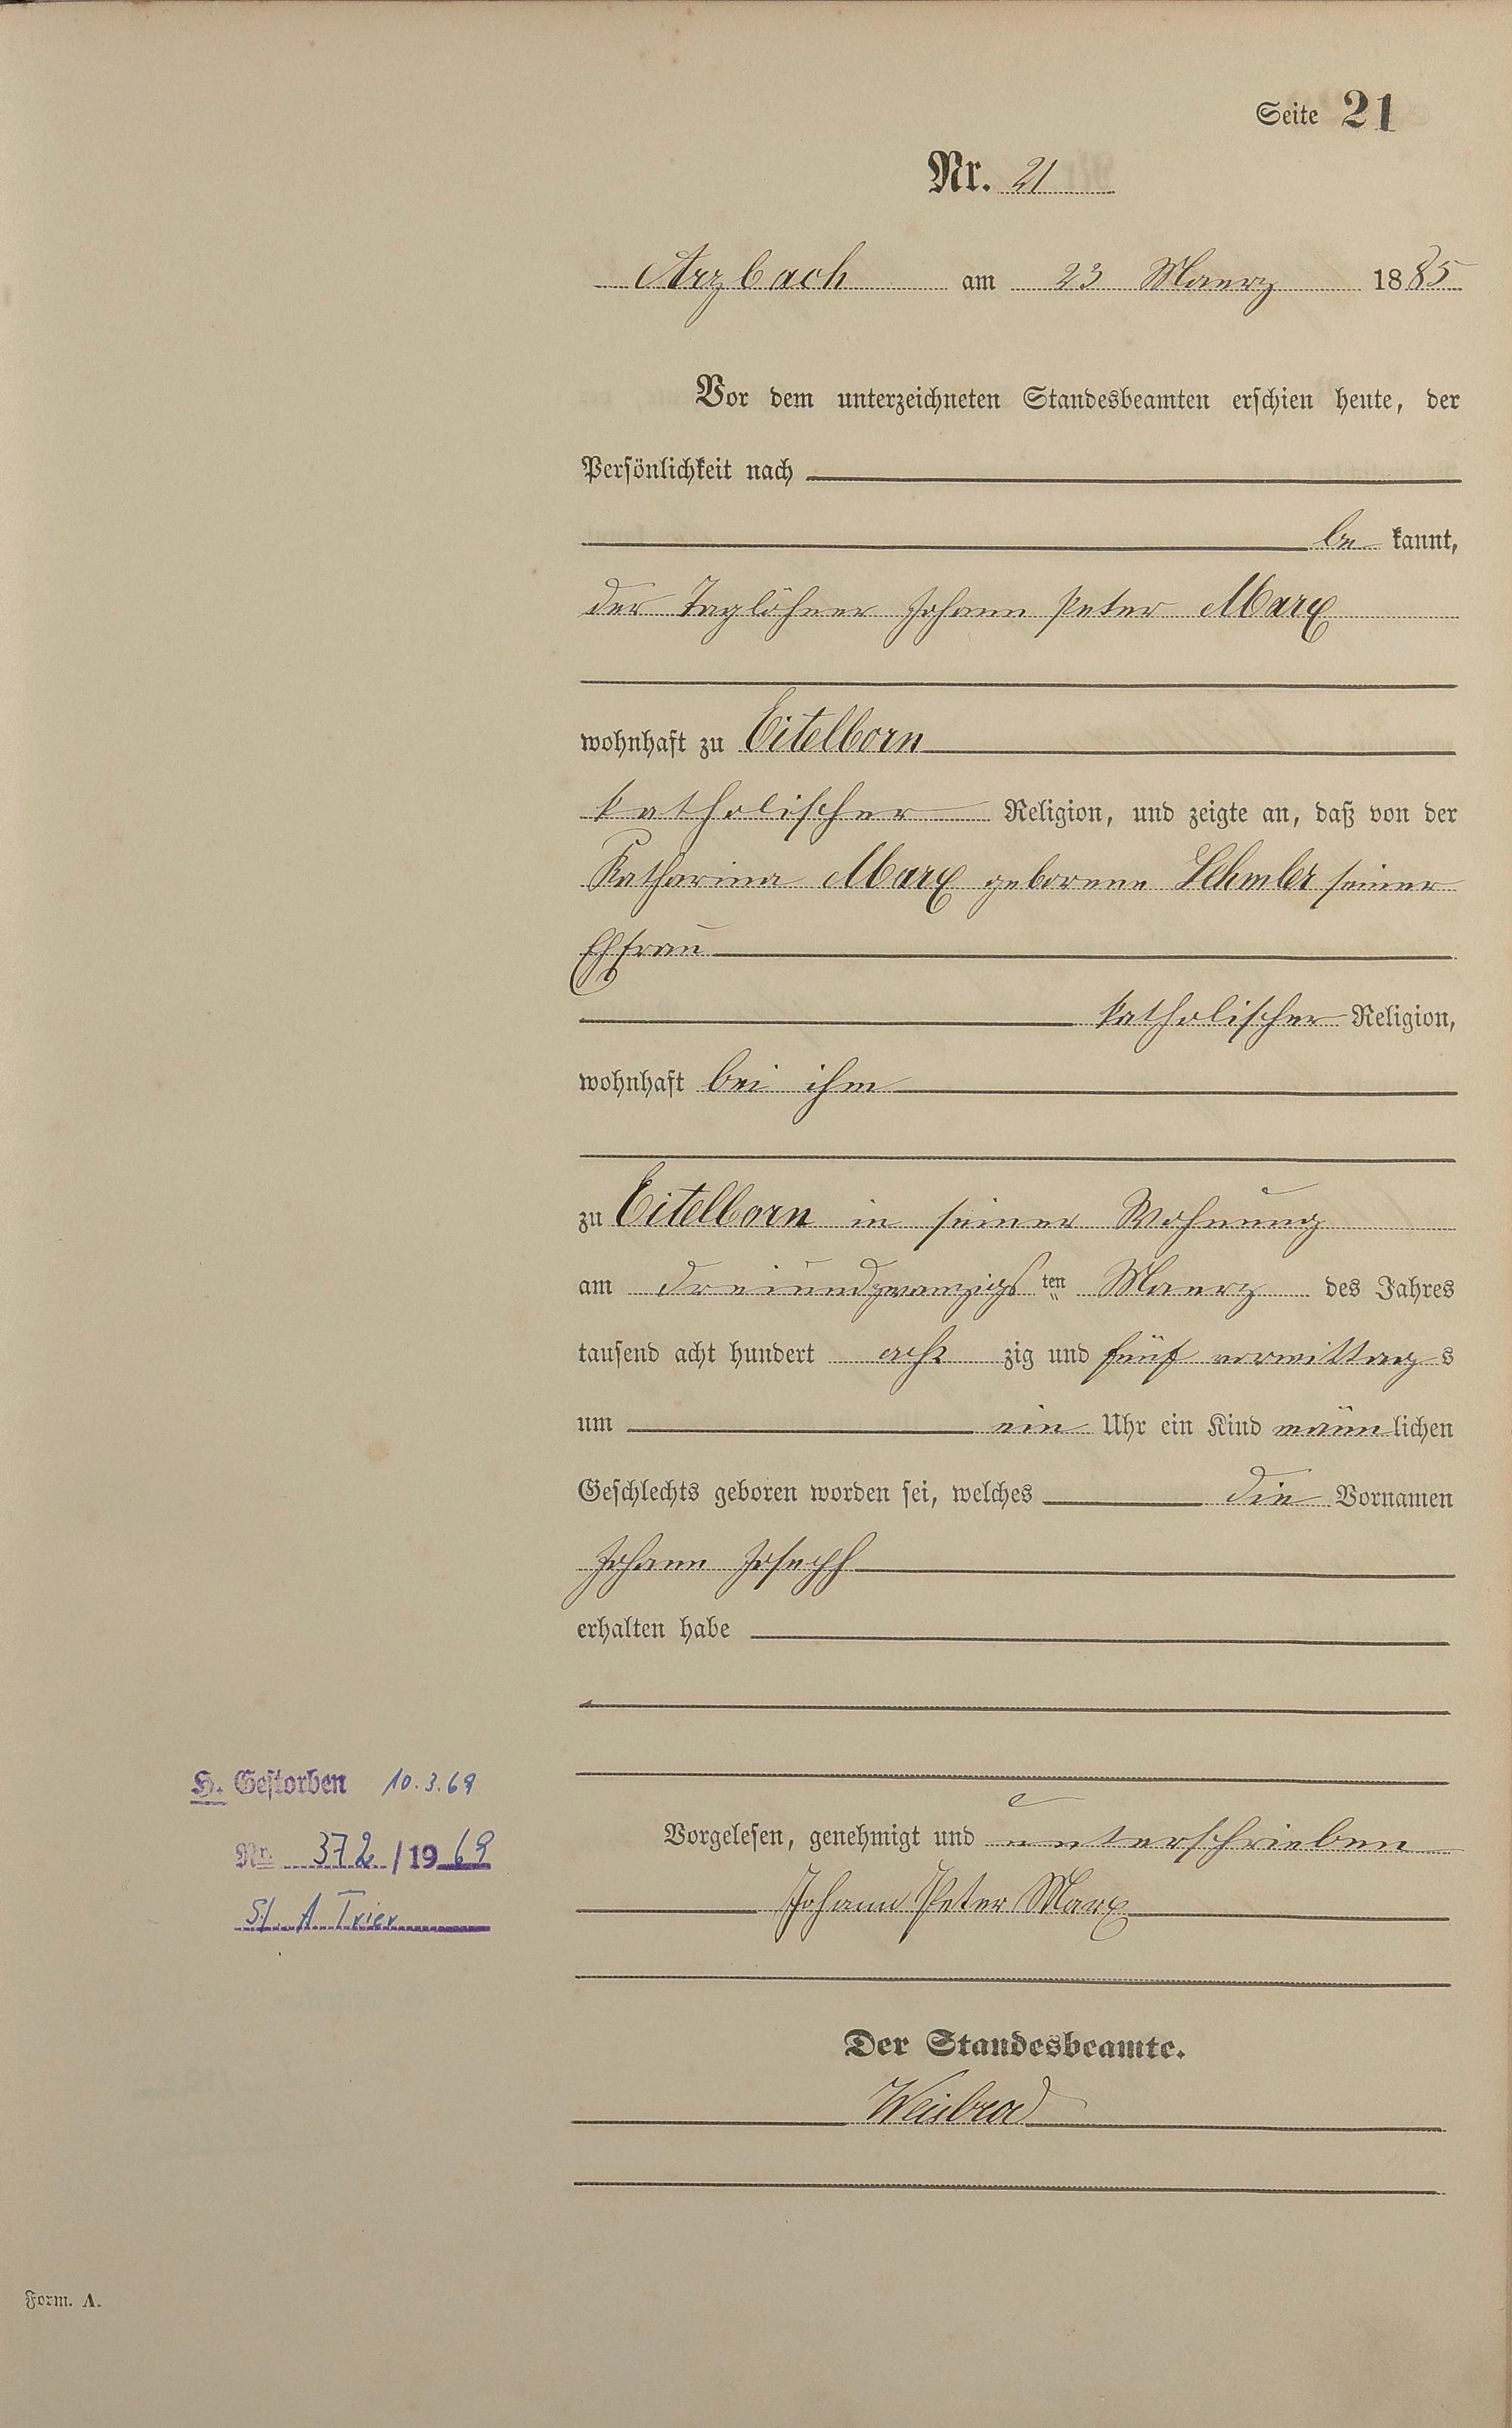 Seite 21
Nr. 21
Arzbach am 23 Maerz 1885
Vor dem unterzeichneten Standesbeamten erschien heute, der
Persönlichkeit nach
be kannt,
der Taglöhner Johann Peter Marx
wohnhaft zu Eitelborn
katholischer Religion, und zeigte an, daß von der
Katharina Marx geborene Lehmler seiner
Ehfrau
katholischer Religion,
wohnhaft bei ihm
zu Eitelborn in seiner Wohnung
am dreiundzwanzigs ten Maerz des Jahres
tausend acht hundert acht zig und fünf vormittag s
um ein Uhr ein Kind männ lichen
Geschlechts geboren worden sei, welches die Vornamen
Johann Joseph
erhalten habe
H. Gestorben 10.3.69
Nr. 372/1969
St. A Trier
Vorgelesen, genehmigt und unterschrieben
Johann Peter Marx
Der Standesbeamte.
Weisbrod
Form. A.